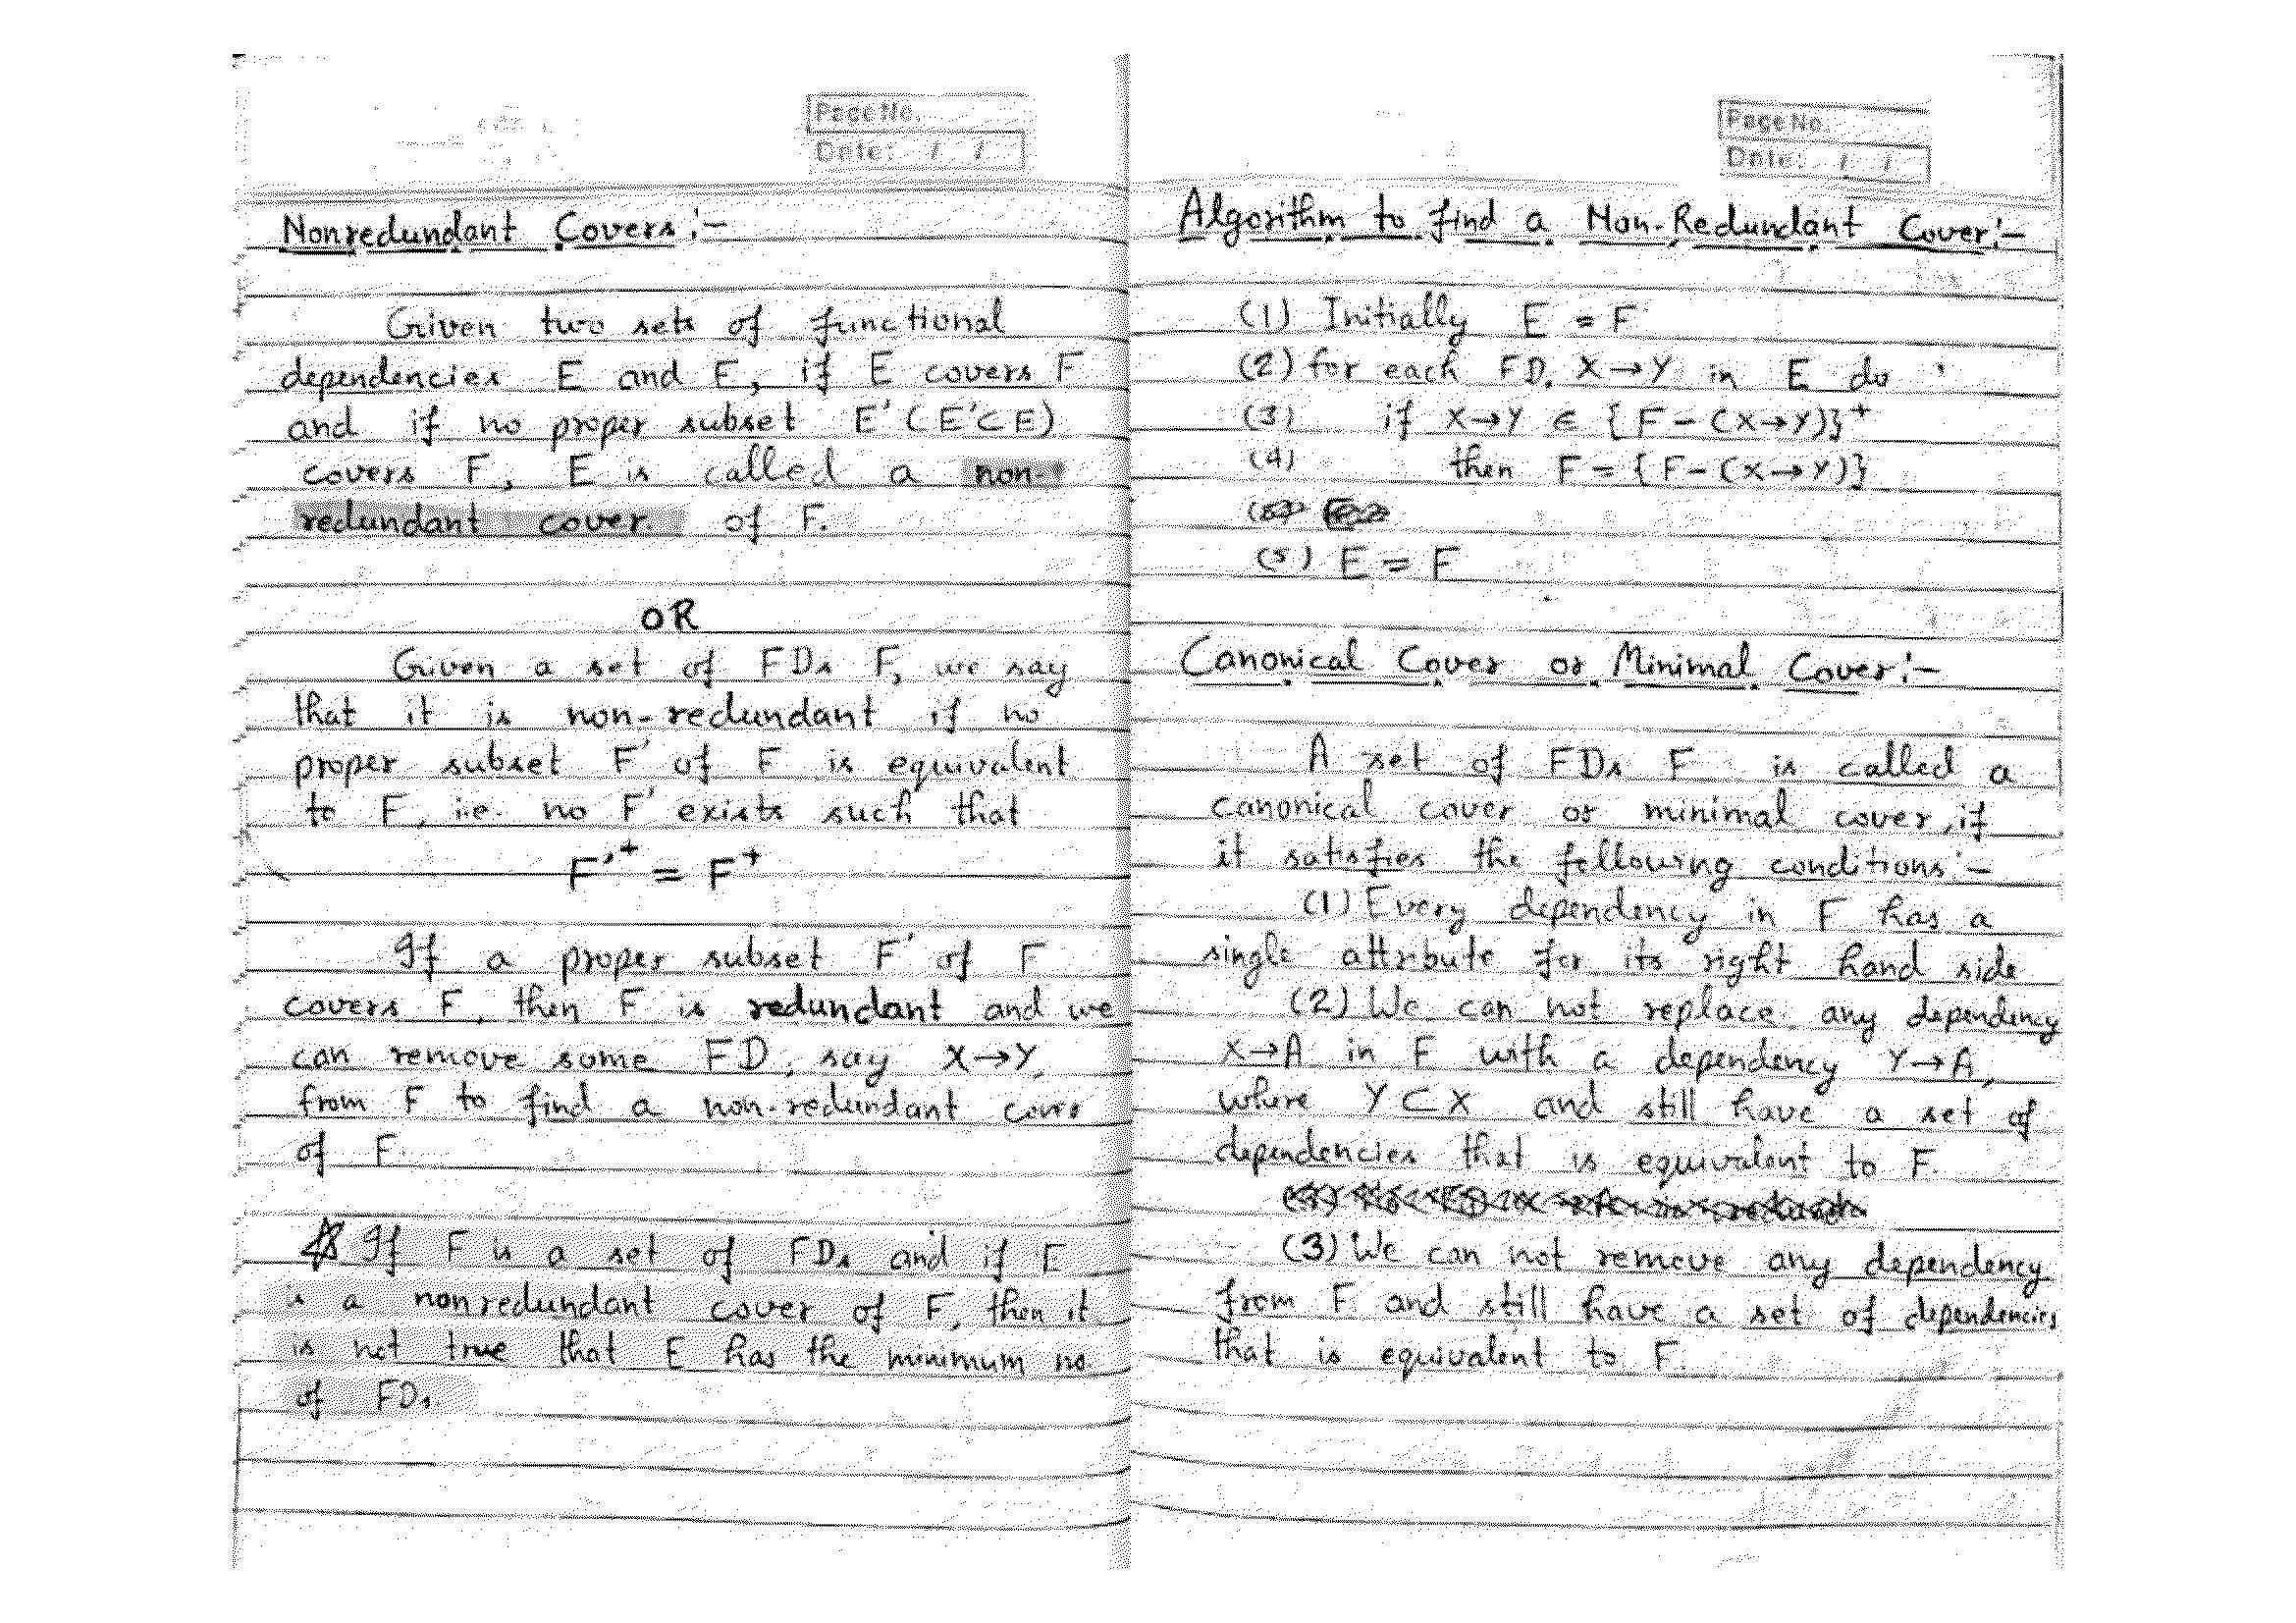 Page No.
Date: / /
Nonredundant Covers:-
Given two sets of functional
dependencies E and F, if E covers F
and if no proper subset E' (E'⊂E)
covers F, E is called a non-
redundant cover of F.
OR
Given a set of FDs F, we say
that it is non-redundant if no
proper subset F' of F is equivalent
to F, i.e. no F' exists such that
F'⁺ = F⁺
If a proper subset F' of F
covers F, then F is redundant and we
can remove some FD, say X→Y,
from F to find a non-redundant cover
of F.
If F is a set of FDs and if E
is a nonredundant cover of F, then it
is not true that E has the minimum no.
of FDs.
Page No.
Date: / /
Algorithm to find a Non-Redundant Cover:-
(1) Initially E = F
(2) for each FD, X→Y in E do
(3) if X→Y ∈ {F-(X→Y)}⁺
(4) then F = {F-(X→Y)}
(5) E = F
Canonical Cover or Minimal Cover:-
A set of FDs F is called a
canonical cover or minimal cover, if
it satisfies the following conditions:-
(1) Every dependency in F has a
single attribute for its right hand side
(2) We can not replace any dependency
X→A in F with a dependency Y→A,
where Y⊂X and still have a set of
dependencies that is equivalent to F.
(3) We can not remove any dependency
from F and still have a set of dependencies
that is equivalent to F.